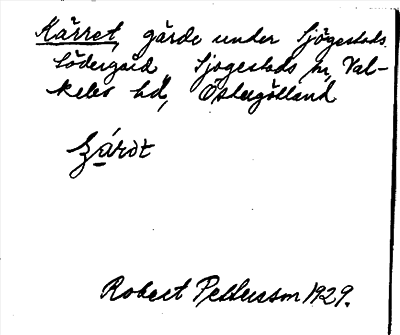 Kärret, gärde under Sjögestads
Södergård Sjögestads sn, Val-
kebo hd, Östergötland
Robert Pettersson 1929.